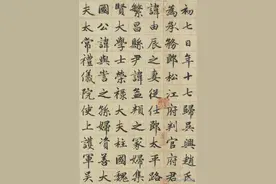 初七日年十七歸吳興趙氏
為承務郎松江府判官府君
諱由辰之妻從仕郎太平路
繁昌縣尹諱孟之冢婦集
賢大學士榮祿大夫柱國魏
國公諱與訔之孫婦資善大
夫太常禮儀院使上護軍吳